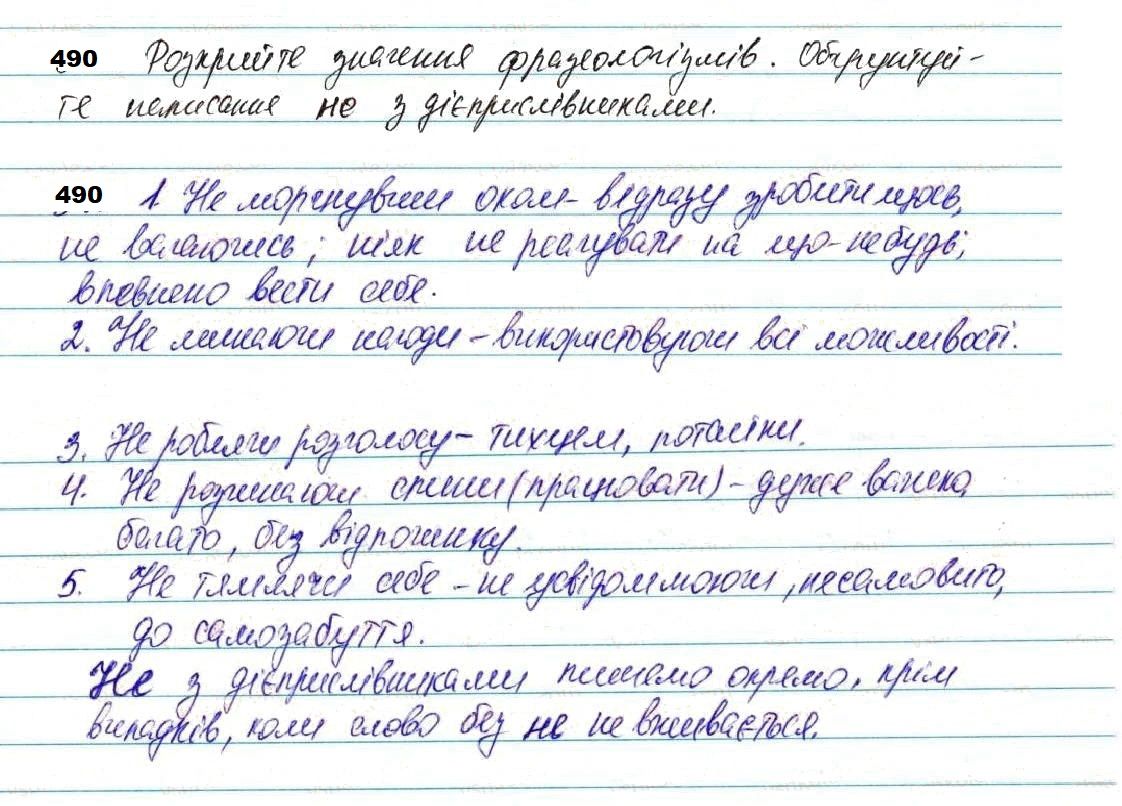 490 Розкрийте значення фразеологізмів. Обґрунтуй-
те написання не з дієприслівниками.
490 1. Не моргнувши оком - відразу зробити щось,
не вагаючись; ніяк не реагувати на що-небудь;
впевнено вести себе.
2. Не минаючи нагоди - використовуючи всі можливості.
3. Не роблячи розголосу - тихцем, потайки.
4. Не розгинаючи спини (працювати) - дуже важко,
багато, без відпочинку.
5. Не тямлячи себе - не усвідомлюючи, несамовито,
до самозабуття.
Не з дієприслівниками пишемо окремо, крім
випадків, коли слово без не не вживається.